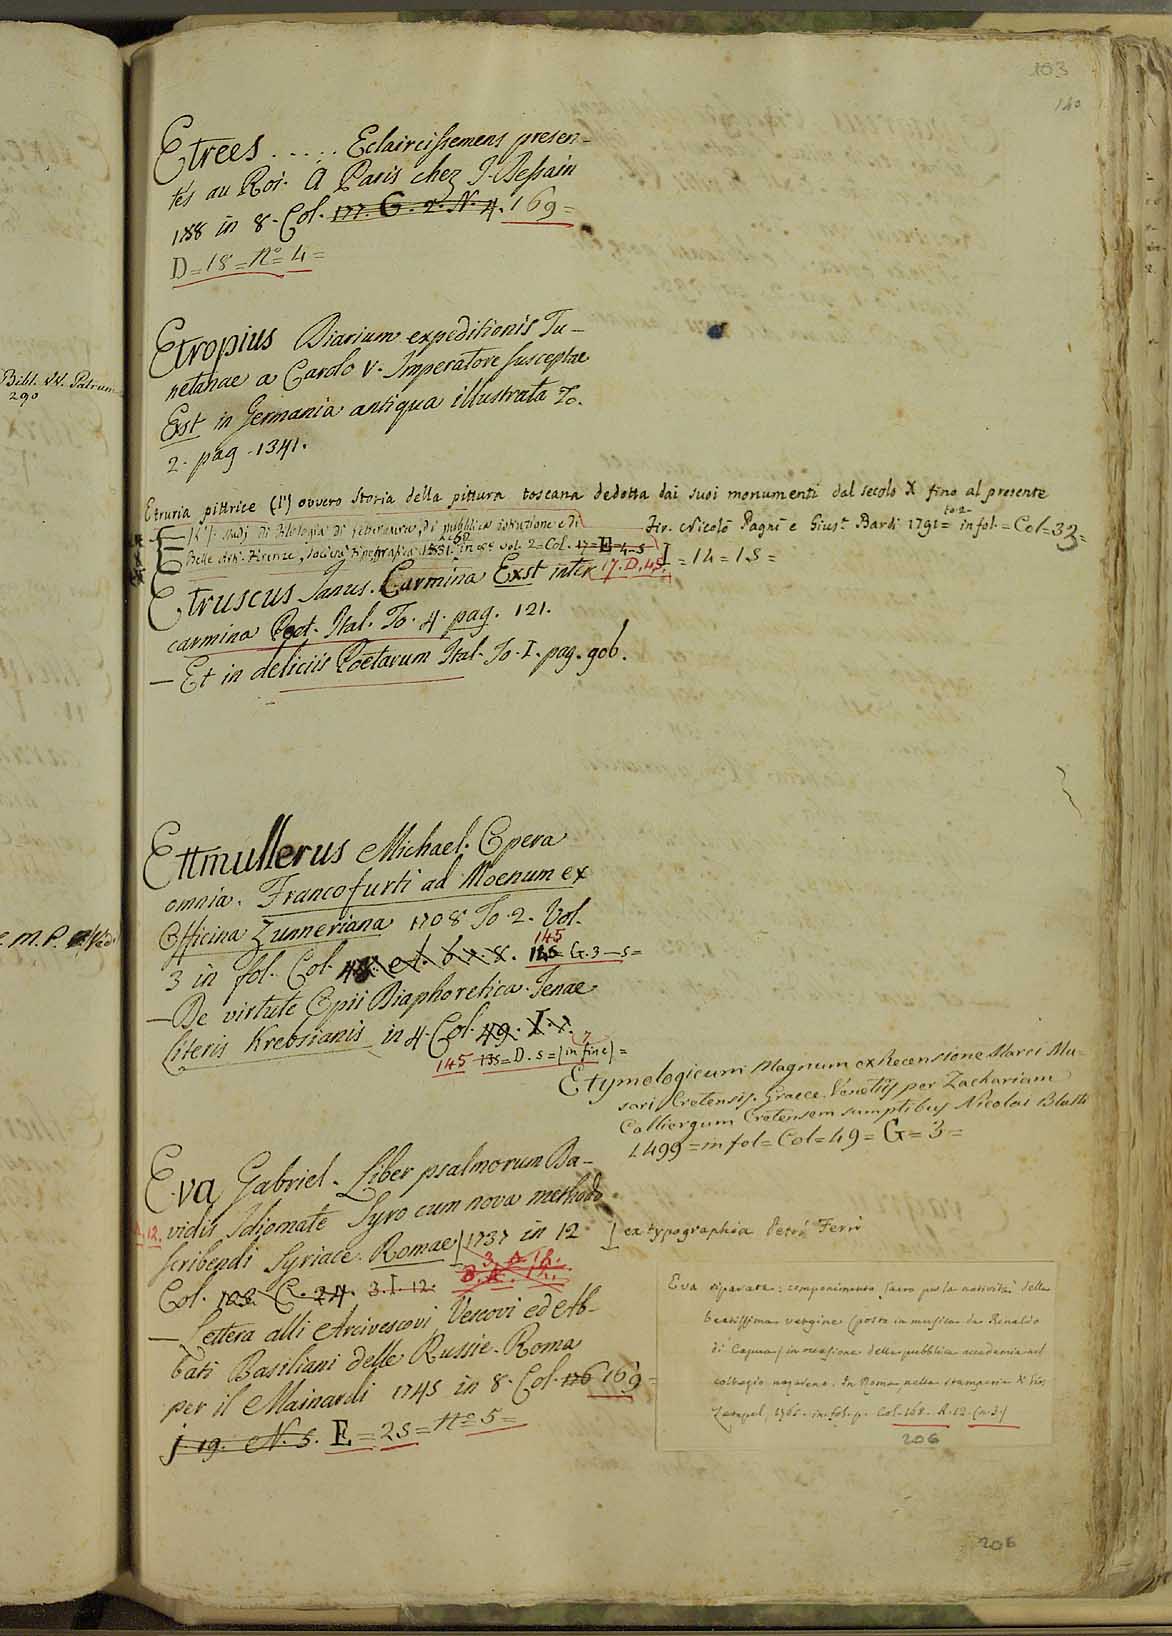 103
140
Etrees ..... Eclaircissemens presen-
tés au Roi. A Paris chez J. Bessain
1788 in 8. Col. 177. G. 2. N. 4. 169=
D=18=No=4=
Etropius Diarium expeditionis Tu-
netanae a Carolo V. Imperatore susceptae
Exst in Germania antiqua illustrata To.
2. pag. 1341.
Bibl. VV. Patrum
290
Etruria pittrice (l') ovvero Storia della pittura toscana dedotta dai suoi monumenti dal secolo X fino al presente
Fir. Nicolò Pagni e Gius. Bardi 1791= to 2 in fol.=Col=33=
I=14=15=
E (l') studj di filologia di letteratura, di pubblica istruzione e di
Belle arti. Firenze, Società tipografica 1851. in 8° vol. 2=Col. 17=E=4-5
17.D.45.
Etruscus Janus. Carmina Exst inter
carmina Poet. Ital. To. 4. pag. 121.
— Et in deliciis Poetarum Ital. To. I. pag. 906.
Ettmullerus Michael. Opera
omnia. Francofurti ad Moenum ex
Officina Zunneriana 1708 To. 2. Vol.
3 in fol. Col. 145 G.3—5=
— De virtute Opii Diaphoretica. Jenae
literis Krebsianis in 4. Col. 49. I. 1.
145 135=D.5=(in fine)=
E. M. P.
Etymologicum Magnum ex Recensione Marci Mu-
sari Cretensis. Graece. Venetiis per Zachariam
Calliergum Cretensem sumptibus Nicolai Blasti
1499=in fol=Col=49=G=3=
Eva Gabriel. Liber psalmorum Da-
vidis Idiomate Syro cum nova methodo
scribendi Syriace. Romae 1737 in 12
ex typographia Petri Ferri
12.
Col. 123. C. 24. 3.I.12. 3. A. 12.
— Lettera alli Arcivescovi, Vescovi ed Ab-
bati Basiliani delle Russie. Roma
per il Mainardi 1745 in 8. Col. 176 169=
J. 19. N. 5. E=25=No 5=
Eva riparata: componimento sacro per la natività della
beatissima vergine (posto in musica da Rinaldo
di Capua) in occasione della pubblica accademia nel
collegio nazareno. In Roma nella stamperia di
Zempel, 1765. in fol. p. Col. 168. A. 12. (n. 3.)
206
206